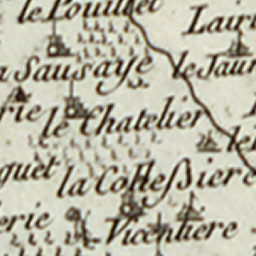 le Pouillet
Lairi
a Sausaye
le Jaur
rie
le Chatelier
lel
guet
la Colleßiere
erie
Vicentiere